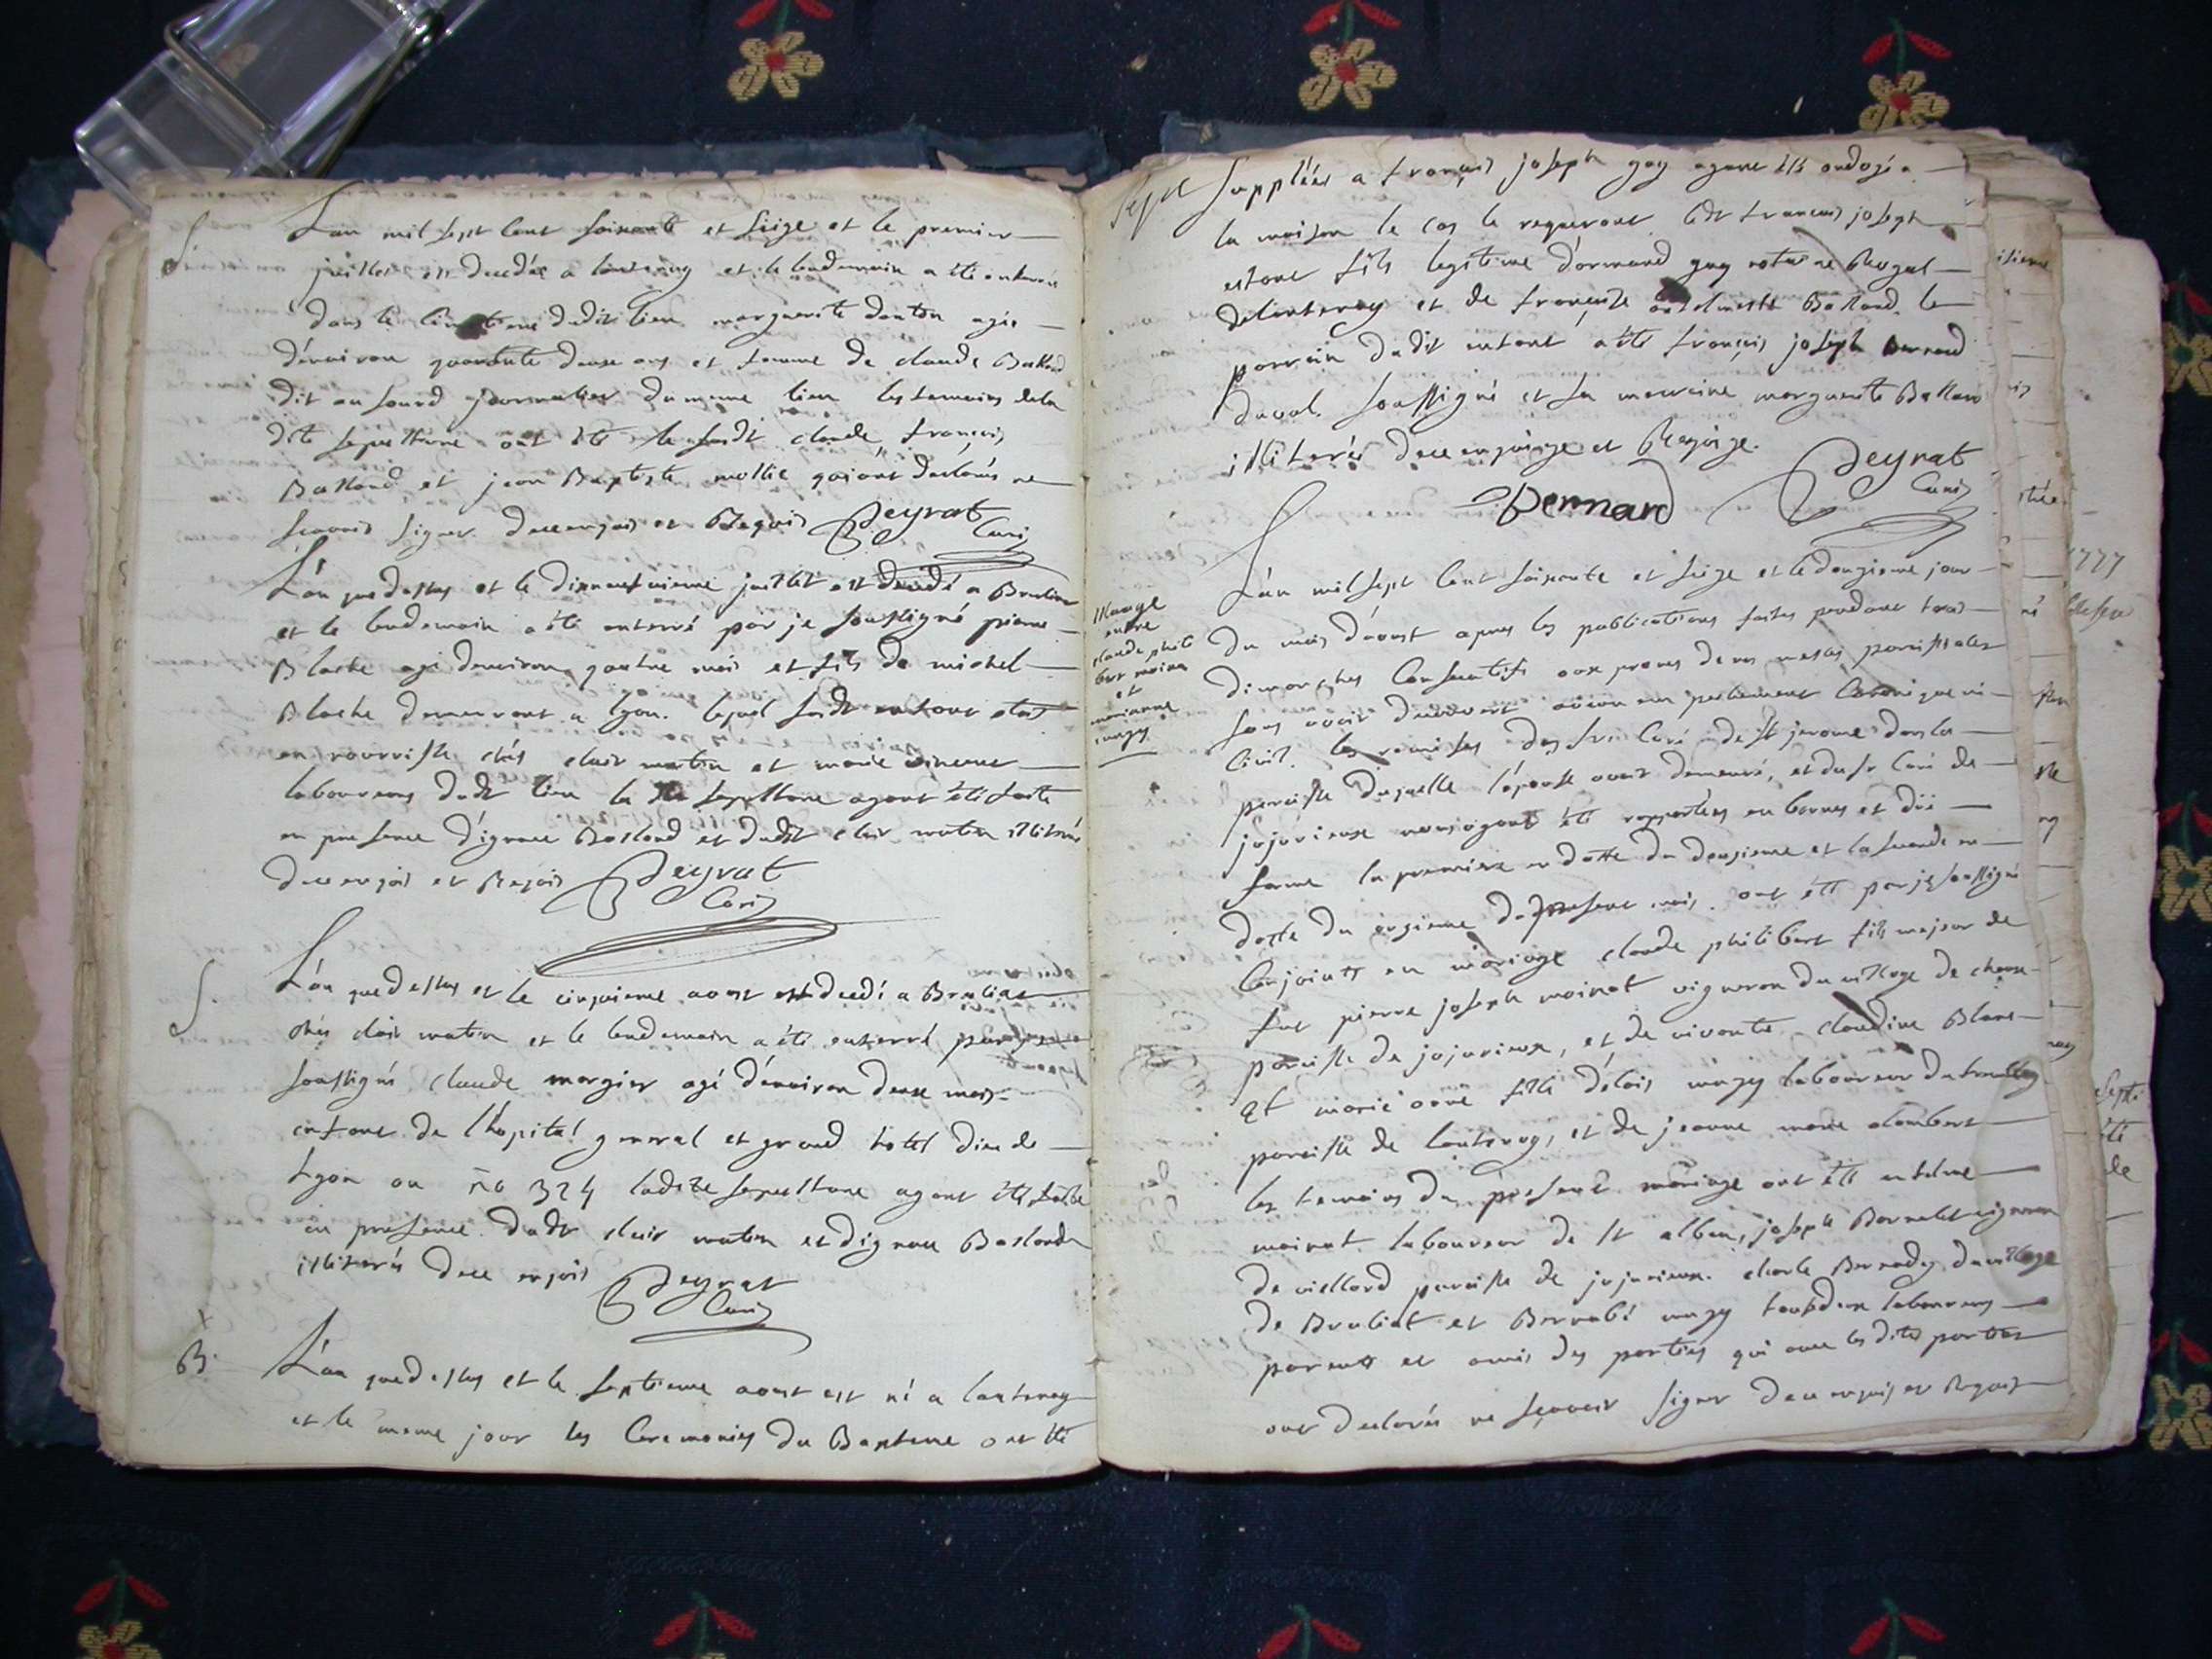 S.
L'an mil sept cent soixante et seize et le premier
juillet est decedée a lantenay et le lendemain a été enterrée
dans le cimetiere dudit lieu marguerite danton agée
d'environ quarante deux ans et femme de claude Balland
dit au sourd journalier du meme lieu les temoins de la
dite sepulture ont été le susdt claude françois
Balland et jean Baptiste mollie qui ont declarés ne
scavoir signer de ce enquis et Requis Deyrat
Curé
L'an que dessus et le dixneuvieme juillet est decedé a Brulias
et le lendemain a été enterré par je soussigné pierre
Blache agé d'environ quatre mois et fils de michel
Blache demeurant a lyon. lequel susdt enfant etoit
en nourrisse chés clair matin et marie
laboureurs dudt lieu la dte sepulture ayant été faite
en presence d'ignace Balland et dudt clair matin illiterés
de ce enquis et Requis Deyrat
Curé
S.
L'an que dessus et le cinquieme aoust est decedé a Brulias
chés clair matin et le lendemain a été enterré par je
soussigné claude morgier agé d'environ deux mois
enfant de l'hopital general et grand hotel dieu de
Lyon au no 324 ladite sepulture ayant été faite
en presence dudt clair matin et d'ignace Balland
illiterés de ce enquis Deyrat
Curé
B.
L'an que dessus et le septieme aoust est né a lantenay
et le meme jour les Ceremonies du Bapteme ont été
suppléés a françois joseph gay ayant été ondoyé a
la maison le cas le requerant ledt françois joseph
estant fils legitime d'armand gay notaire Royal
de lantenay et de françoise Balland. le
parrain dudit enfant a été françois joseph Bernard
duval soussigné et sa marraine marguerite Balland
illiterée de ce enquise et Requise.
Deyrat
Curé
Bernard
Mariage
entre
claude phili
bert moinat
et
marianne
L'an mil sept cent soixante et seize et le douzieme jour
du mois d'aoust apres les publications faites pendant trois
dimanches Consecutifs aux prones de nos messes paroissiales
sans avoir decouvert aucun empechement Canonique ni
Civil. les remises des srs Curé de st jerome dans la
paroisse duquelle l'epouse avoit demeuré, et du sr Curé de
jujurieux nous ayant été rapportées en bonnes et düe
forme la premiere en datte du douzieme et la seconde en
datte du onzieme du present mois. ont été par je soussigné
Conjoints en mariage claude philibert fils majeur de
feu pierre joseph moinat vigneron du village de
paroisse de jujurieux, et de vivante claudine Blanc
et marie anne fille d'élois laboureur
paroisse de lantenay, et de jeanne marie alombert
les temoins du present mariage ont été anthelme
moinat laboureur de st alban, joseph vigneron
de viellard paroisse de jujurieux. charle du village
de Brulias et Barnabé tous deux laboureurs
parents et amis des parties qui avec les dites parties
ont declarés ne sçavoir signer de ce enquis et Requis